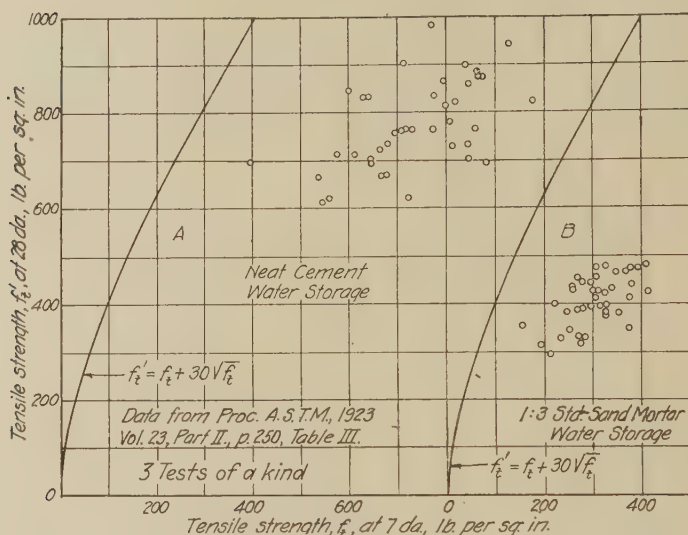 1000
800
600
400
200
0
Tensile strength, f't, at 28 da., lb. per sq. in.
A
B
Neat Cement
Water Storage
f't = ft + 30√ft
Data from Proc. A.S.T.M., 1923
Vol. 23, Part II., p. 250, Table III.
3 Tests of a kind
1:3 Std. Sand Mortar
Water Storage
f't = ft + 30√ft
200
400
600
800
0
200
400
Tensile strength, ft, at 7 da., lb. per sq. in.